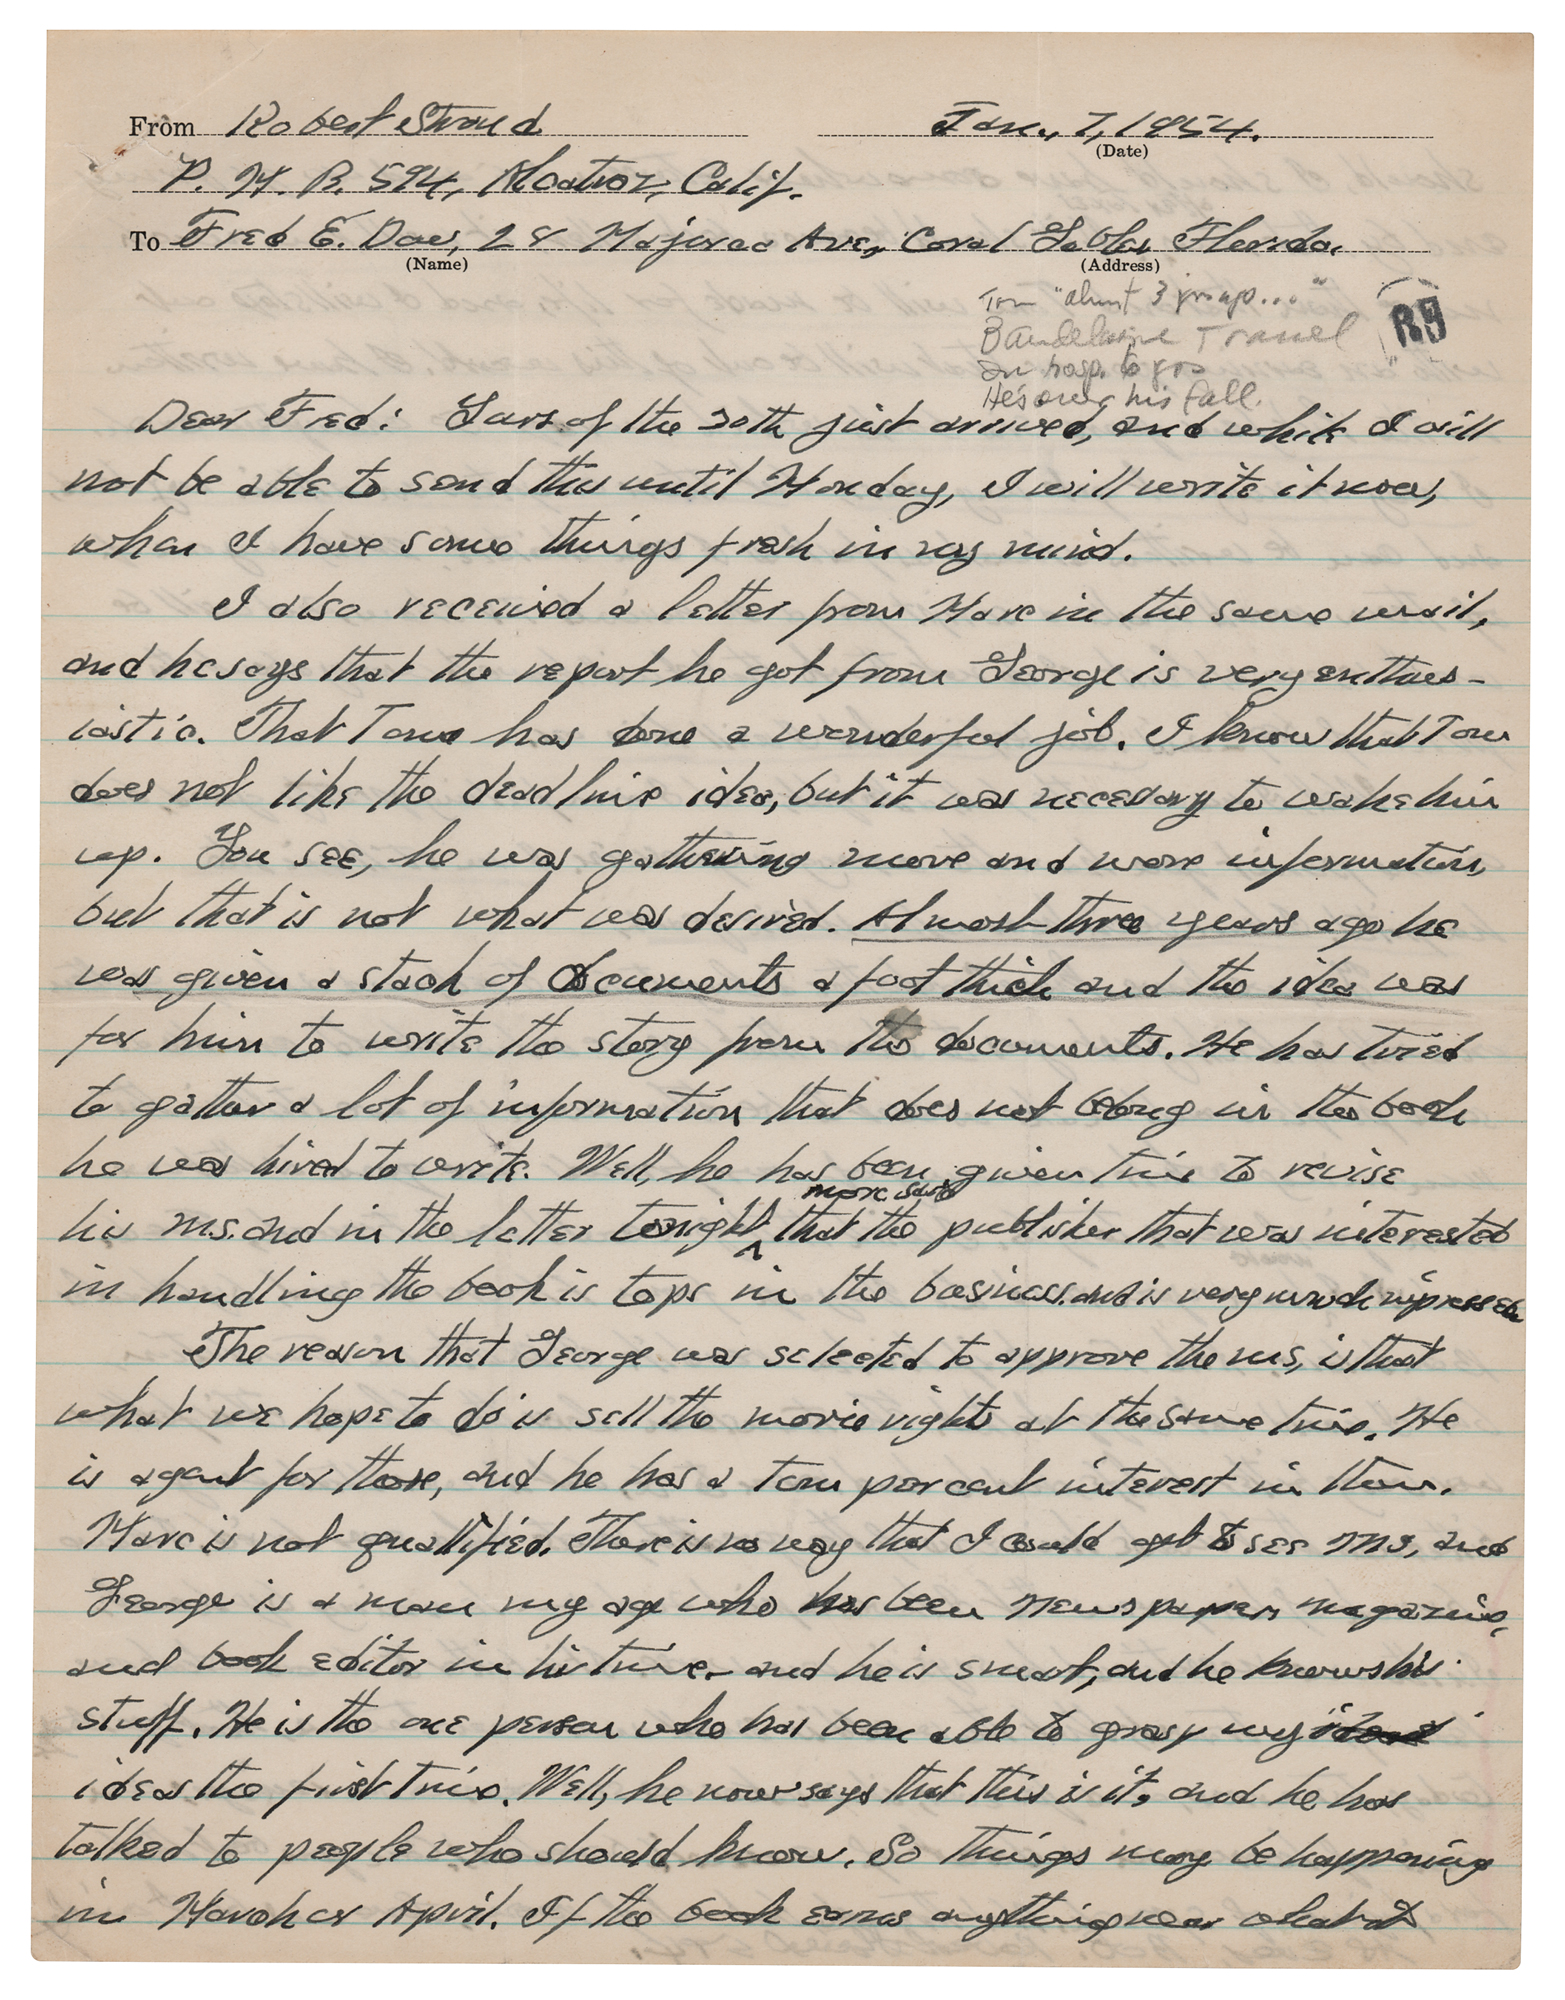 From Robert Stroud Jan., 7, 1954.
(Date)
P. M. B. 594, Alcatraz, Calif.
To Fred E. Daw, 28 Majorca Ave, Coral Gables Florida.
(Name) (Address)
Tom "almost 3 yrs ago..."
Travel
In hosp. to you
He's over his fall.
Dear Fred: Yours of the 30th just arrived, and while I will
not be able to send this until Monday, I will write it now,
when I have some things fresh in my mind.
I also received a letter from Marc in the same mail,
and he says that the report he got from George is very enthus-
iastic. That Tom has done a wonderful job. I know that Tom
does not like the deadline idea, but it was necessary to wake him
up. You see, he was gathering more and more information,
but that is not what was desired. Almost three years ago he
was given a stack of documents a foot thick and the idea was
for him to write the story from the documents. He has tried
to gather a lot of information that does not belong in the book
he was hired to write. Well, he has been given time to revise
his ms. and in the letter tonight, Marc said that the publisher that was interested
in handling the book is tops in the business. and is very much impressed
The reason that George was selected to approve the ms, is that
what we hope to do is sell the movie rights at the same time. He
is agent for those, and he has a ten per cent interest in them.
Marc is not quallified. There is no way that I could get to see MS, and
George is a man my age who has been newspaper, magazine,
and book editor in his time. and he is smart, and he knows his
stuff. He is the one person who has been able to grasp my
ideas the first time. Well, he now says that this is it, and he has
talked to people who should know. So things may be happening
in March or April. If the book earns anything near what it